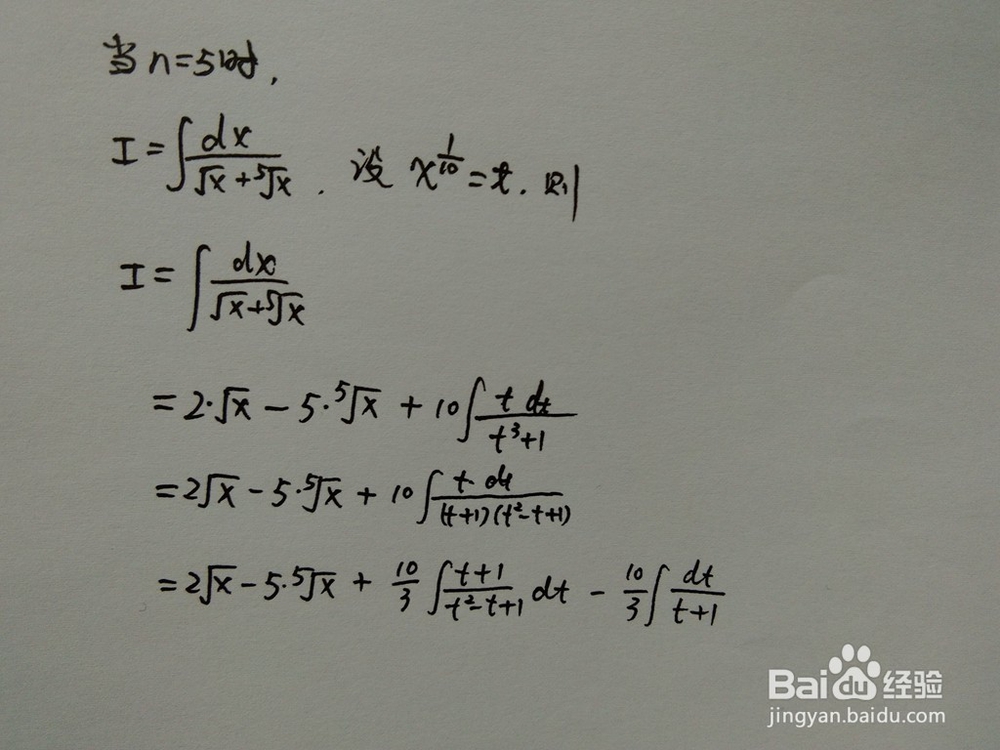 当 n=5时,
I=∫dx/(√x+⁵√x). 设 x^(1/10)=t. 则
I=∫dx/(√x+⁵√x)
=2·√x-5·⁵√x+10∫t dt/(t³+1)
=2√x-5·⁵√x+10∫t·dt/((t+1)(t²-t+1))
=2√x-5·⁵√x+10/3∫(t+1)/(t²-t+1)dt-10/3∫dt/(t+1)
Bai du 经验
jingyan.baidu.com